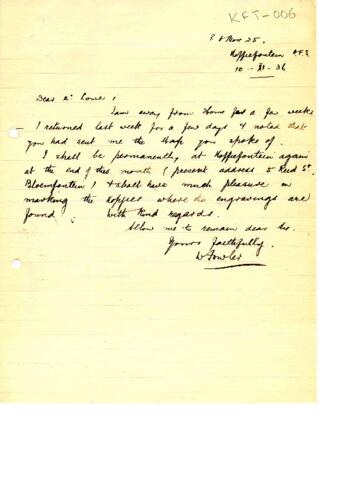 KFT-006
P.O. Box 25.
Koffiefontein O.F.S
10 - XI - 36
Dear Mr Lowe;
I am away from Home for a few weeks
- I returned last week for a few days & noted that
you had sent me the Maps you spoke of.
I shall be permanently at Koffiefontein again
at the end of this month (present address 5 Reid St.
Bloemfontein) & shall have much pleasure in
marking the Koppies where the engravings are
found. With Kind regards.
Allow me to remain dear Sir.
Yours faithfully.
D Fowler